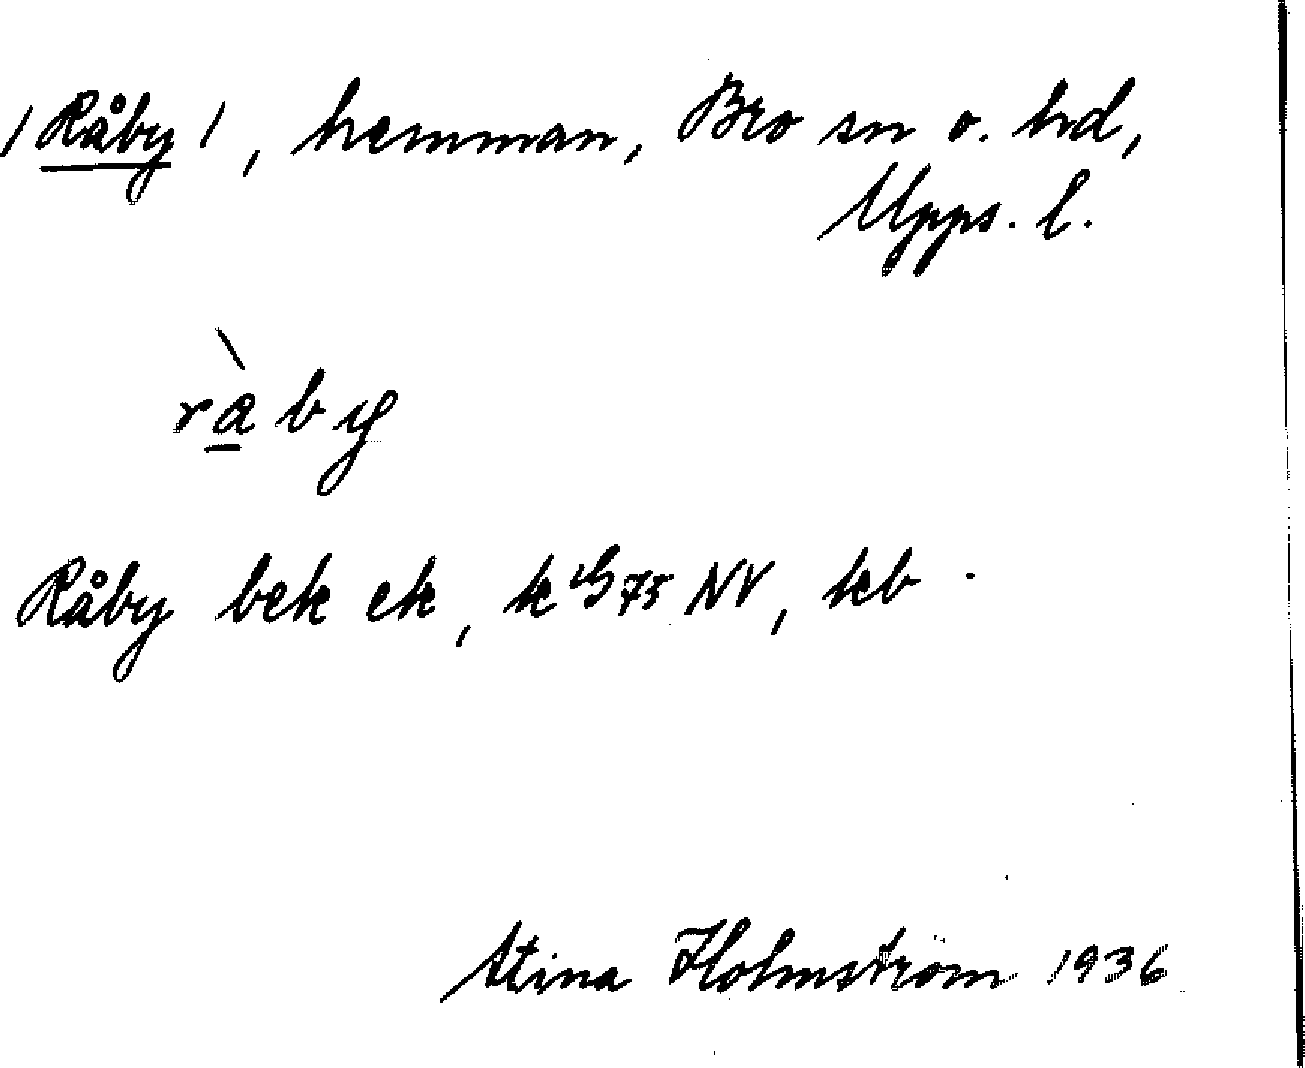 /Råby/, hemman, Bro sn o. hd,
Upps. l.
ràby
Råby bek ek, k G 75 NV, kb.
Stina Holmström 1936